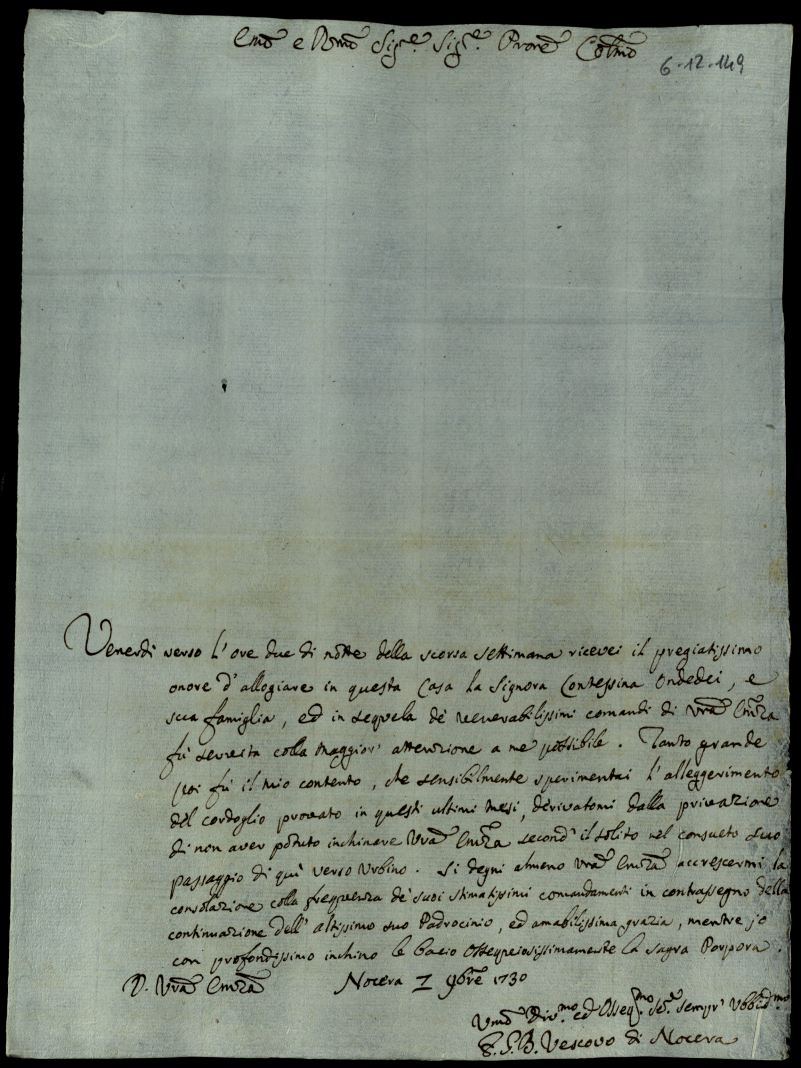 Emo e Rmo Sigre. Sigre. Prone Colmo
6-12-149
Venerdi verso l'ore due di notte della scorsa settimana ricevei il pregiatissimo
onore d'allogiare in questa Casa la Signora Contessina Ondedei, e
sua famiglia, ed in sequela de' venerabilissimi comandi di Vra Emza
fù servita colla maggior' attenzione a me possibile. Tanto grande
poi fù il mio contento, che sensibilmente sperimentai l'alleggerimento
del cordoglio provato in questi ultimi mesi, derivatomi dalla privazione
di non aver potuto inchinare Vra Emza second' il solito nel consueto suo
passaggio di quì verso Urbino. Si degni almeno Vra Emza accrescermi la
consolazione colla frequenza de' suoi stimatissimi comandamenti in contrassegno della
continuazione dell' altissimo suo Padrocinio, ed amabilissima grazia, mentre io
con profondissimo inchino le bacio Ossequiosissimamente la Sagra Porpora.
D. Vra Emza Nocera 7 9bre 1730
Umo Divmo ed Osseqmo Sre sempr' Ubbidmo
Vescovo di Nocera